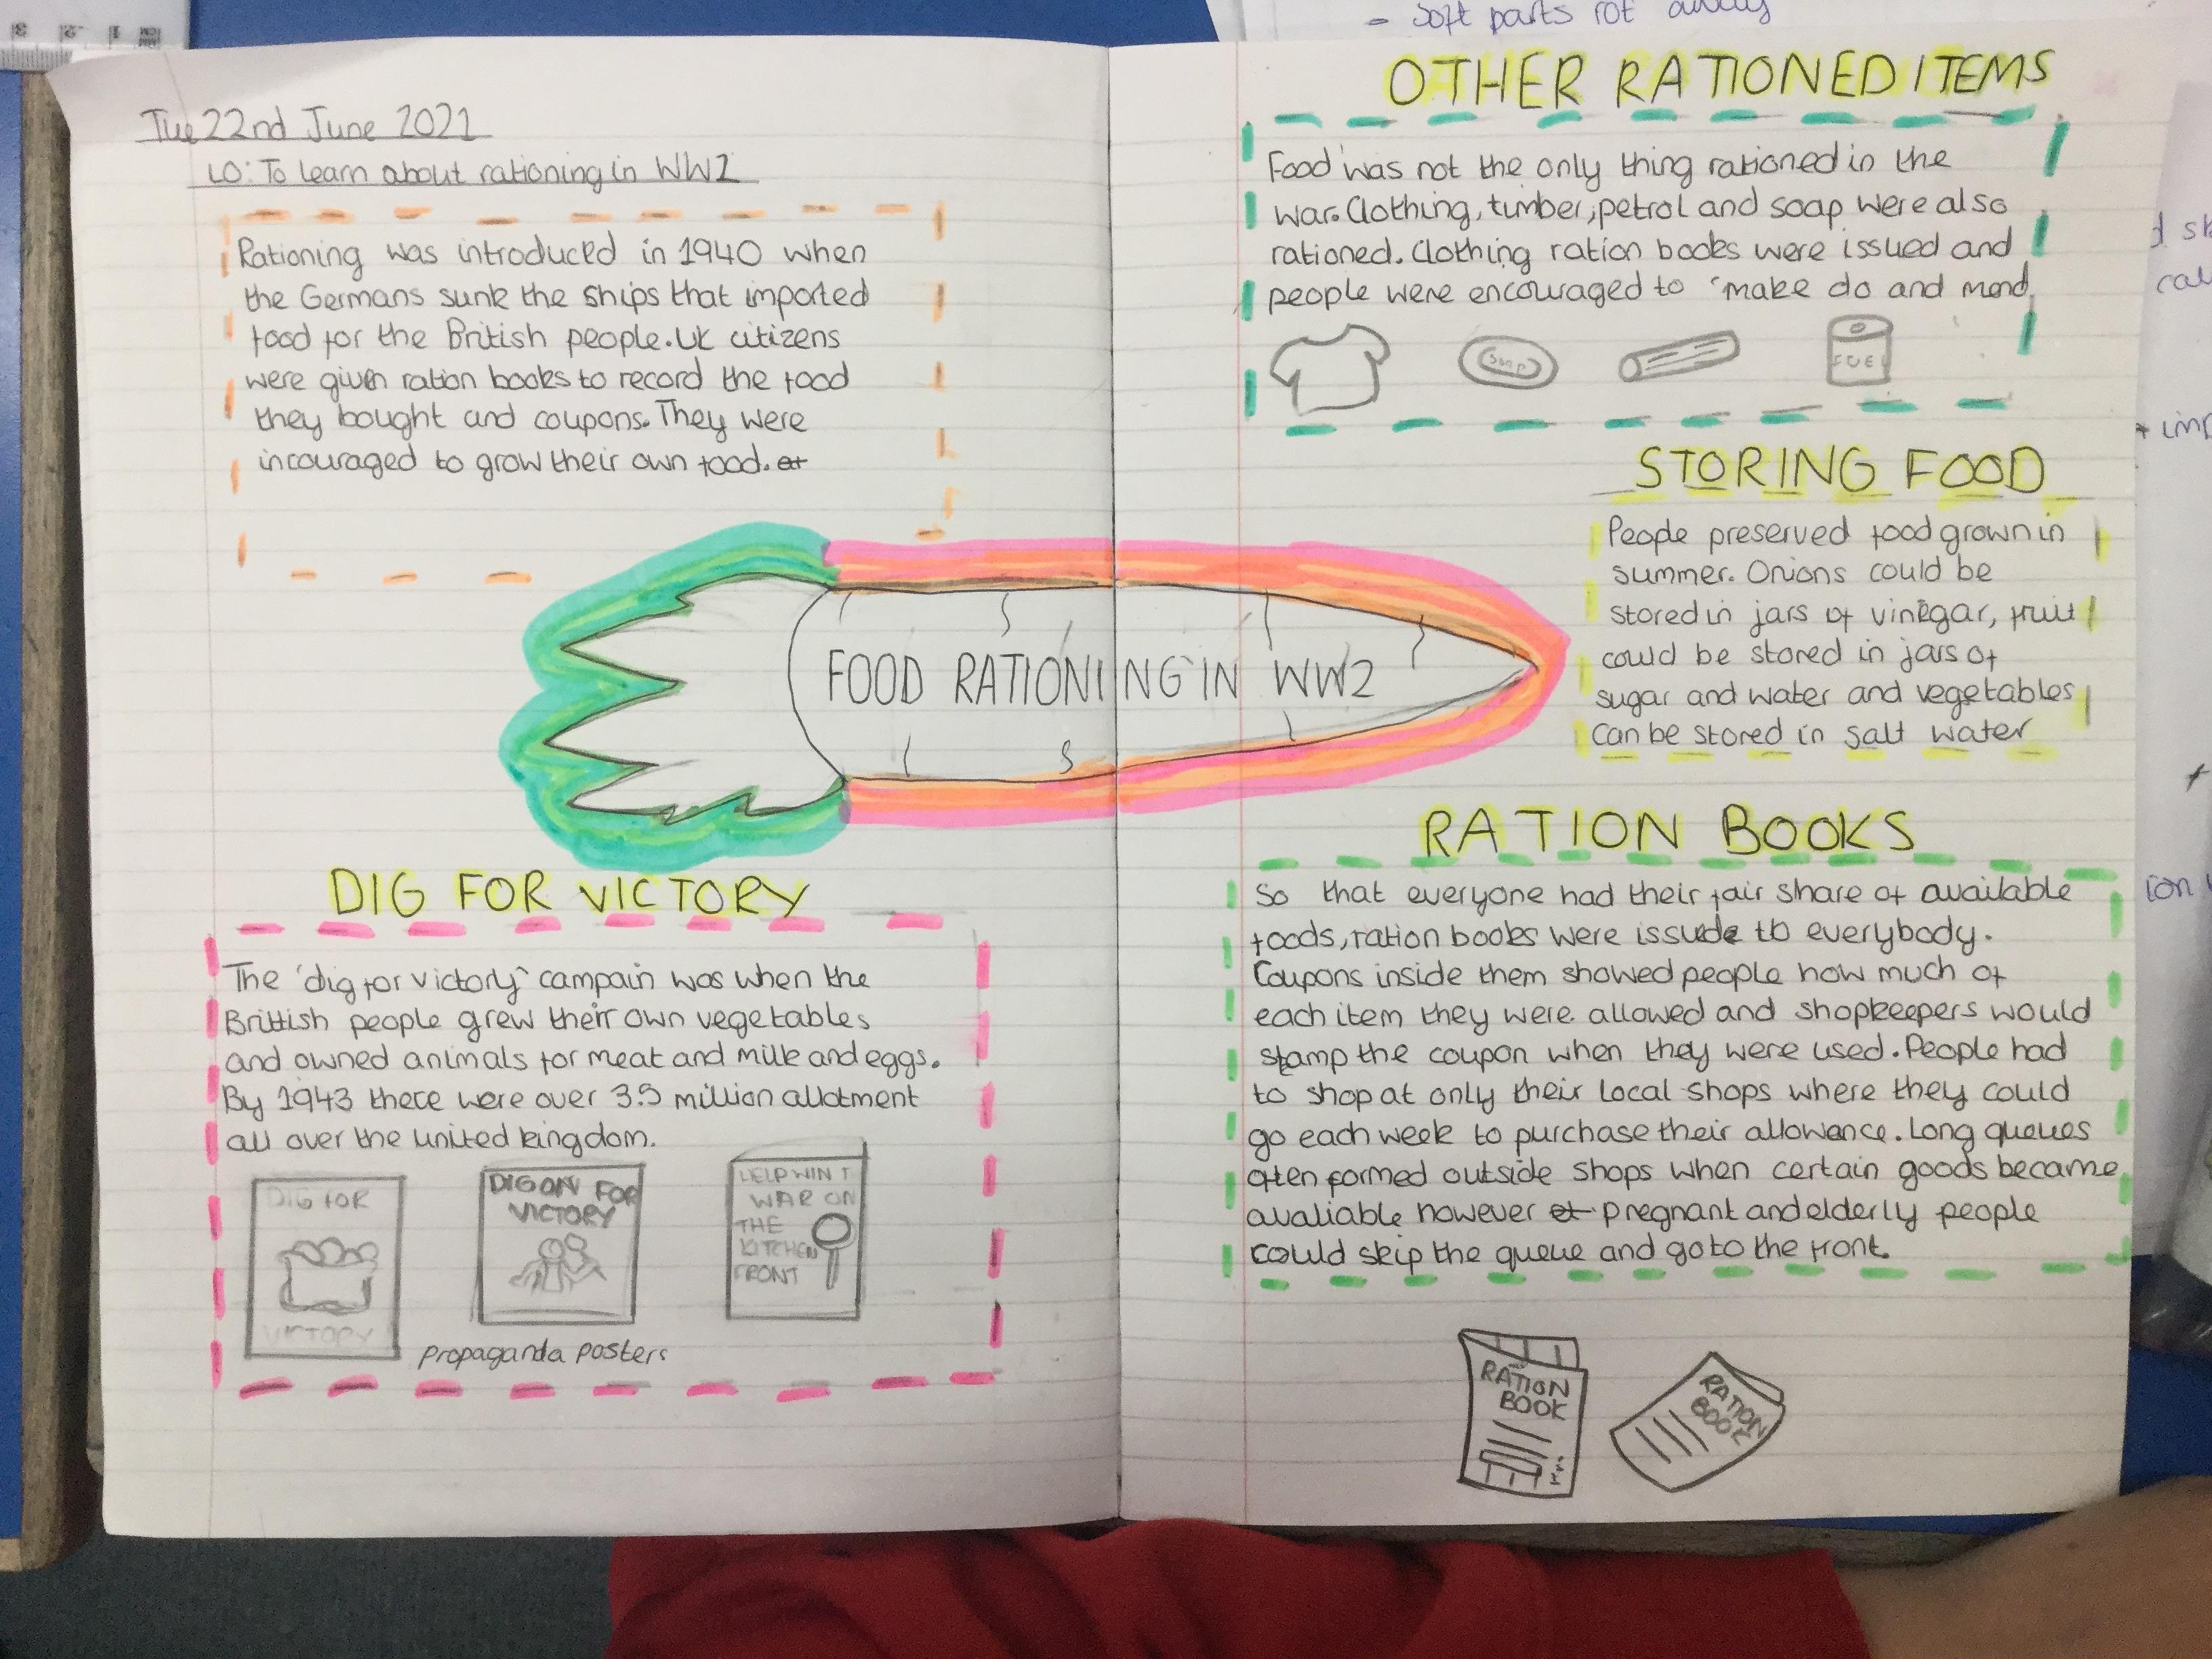 Tue 22nd June 2021
LO: To learn about rationing in WW2
Rationing was introduced in 1940 when
the Germans sunk the ships that imported
food for the British people. UK citizens
were given ration books to record the food
they bought and coupons. They were
incouraged to grow their own food.
FOOD RATIONING IN WW2
DIG FOR VICTORY
The 'dig for victory' campain was when the
Brittish people grew their own vegetables
and owned animals for meat and milk and eggs.
By 1943 there were over 3.5 million allotment
all over the united kingdom.
DIG FOR
VICTORY
DIG ON FOR
VICTORY
HELP WIN T
WAR ON
THE
KITCHEN
FRONT
propaganda posters
- Soft parts rot away
OTHER RATIONED ITEMS
Food was not the only thing rationed in the
war. Clothing, timber, petrol and soap were also
rationed. Clothing ration books were issued and
people were encouraged to 'make do and mend
Soap
FUEL
STORING FOOD
People preserved food grown in
summer. Onions could be
stored in jars of vinegar, fruit
could be stored in jars of
sugar and water and vegetables
can be stored in salt water
RATION BOOKS
So that everyone had their fair share of available
foods, ration books were issude to everybody.
Coupons inside them showed people how much of
each item they were allowed and shopkeepers would
stamp the coupon when they were used. People had
to shop at only their local shops where they could
go each week to purchase their allowance. Long queues
often formed outside shops when certain goods became
avaliable however pregnant and elderly people
could skip the queue and go to the front.
RATION
BOOK
RATION
BOOK